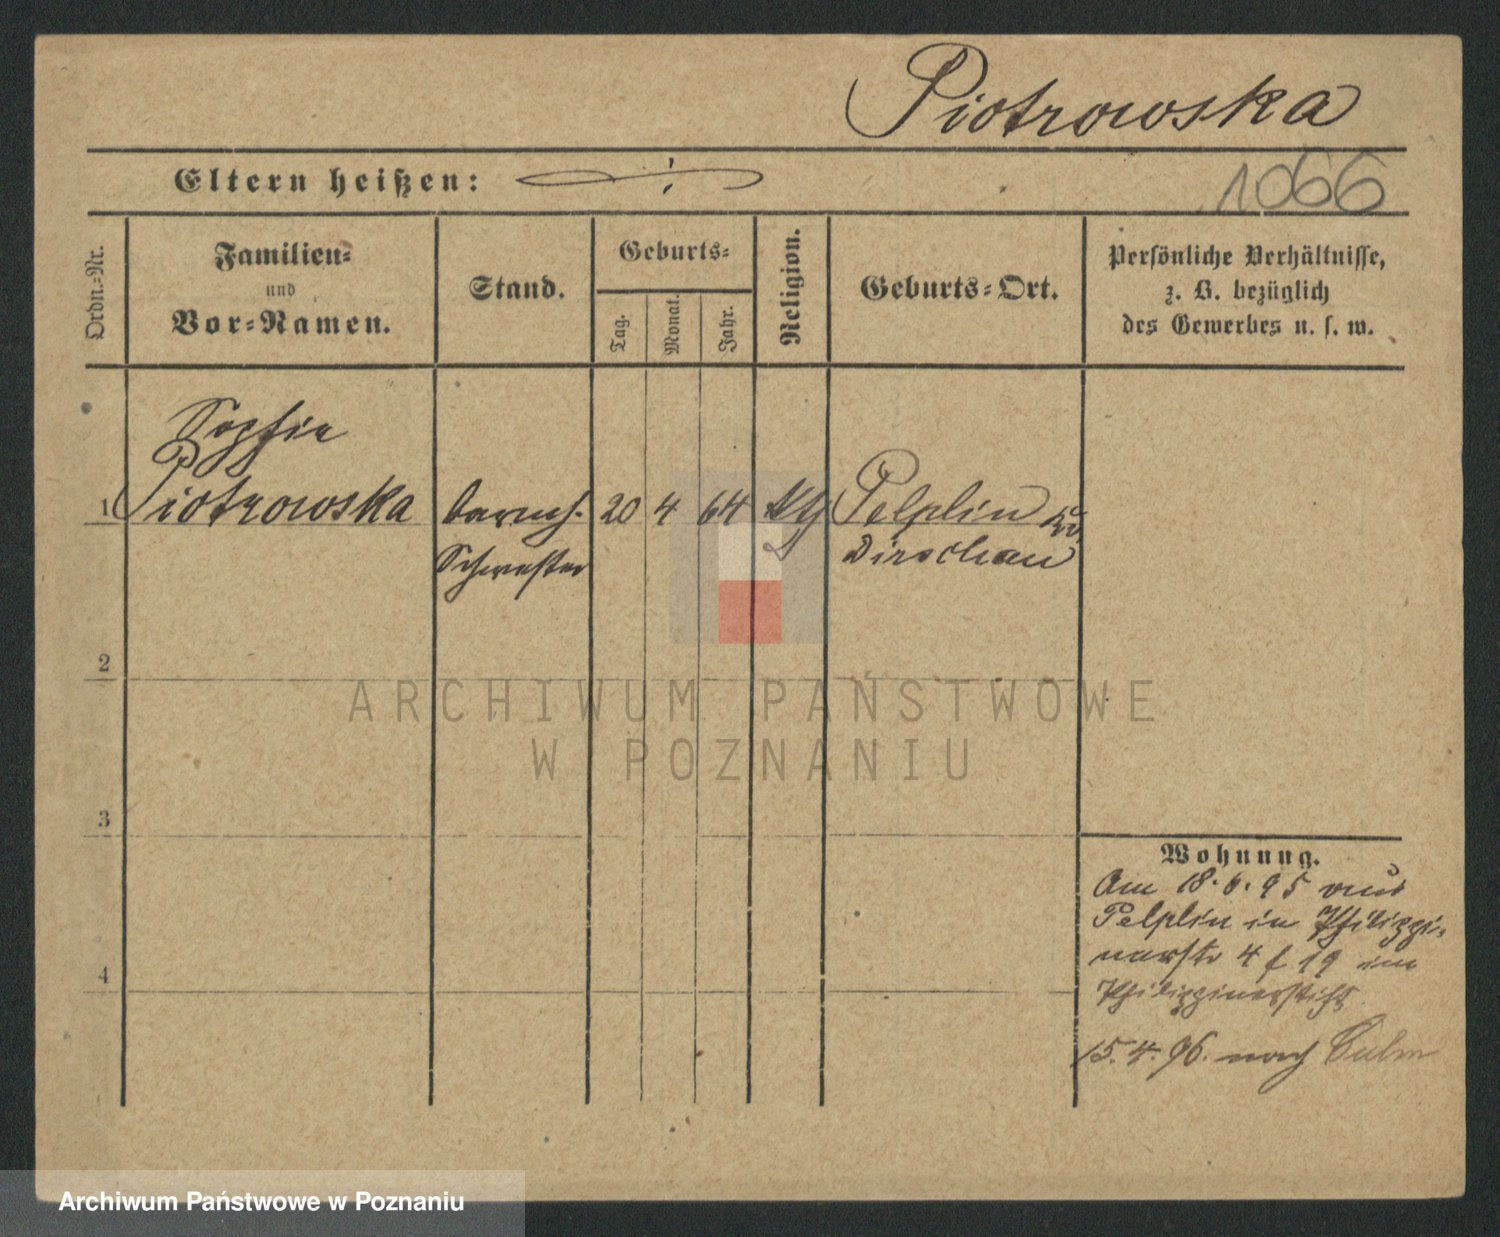 Piotrowska
Eltern heißen:
1066
Ordn.-Nr.
Familien-
und
Vor-Namen.
Stand.
Geburts-
Tag.
Monat.
Jahr.
Religion.
Geburts-Ort.
Persönliche Verhältnisse,
z. B. bezüglich
des Gewerbes u. s. w.
Sophie
1 Piotrowska barmh. 20 4 64 kth Pelplin Kr.
Schwester Dirschau
2
ARCHIWUM PAŃSTWOWE
W POZNANIU
3
Wohnung.
Am 18.6.95 aus
Pelplin in Philippi-
nerstr 4 f 19 im
4
Philippinerstift
15.4.96. nach Culm
Archiwum Państwowe w Poznaniu